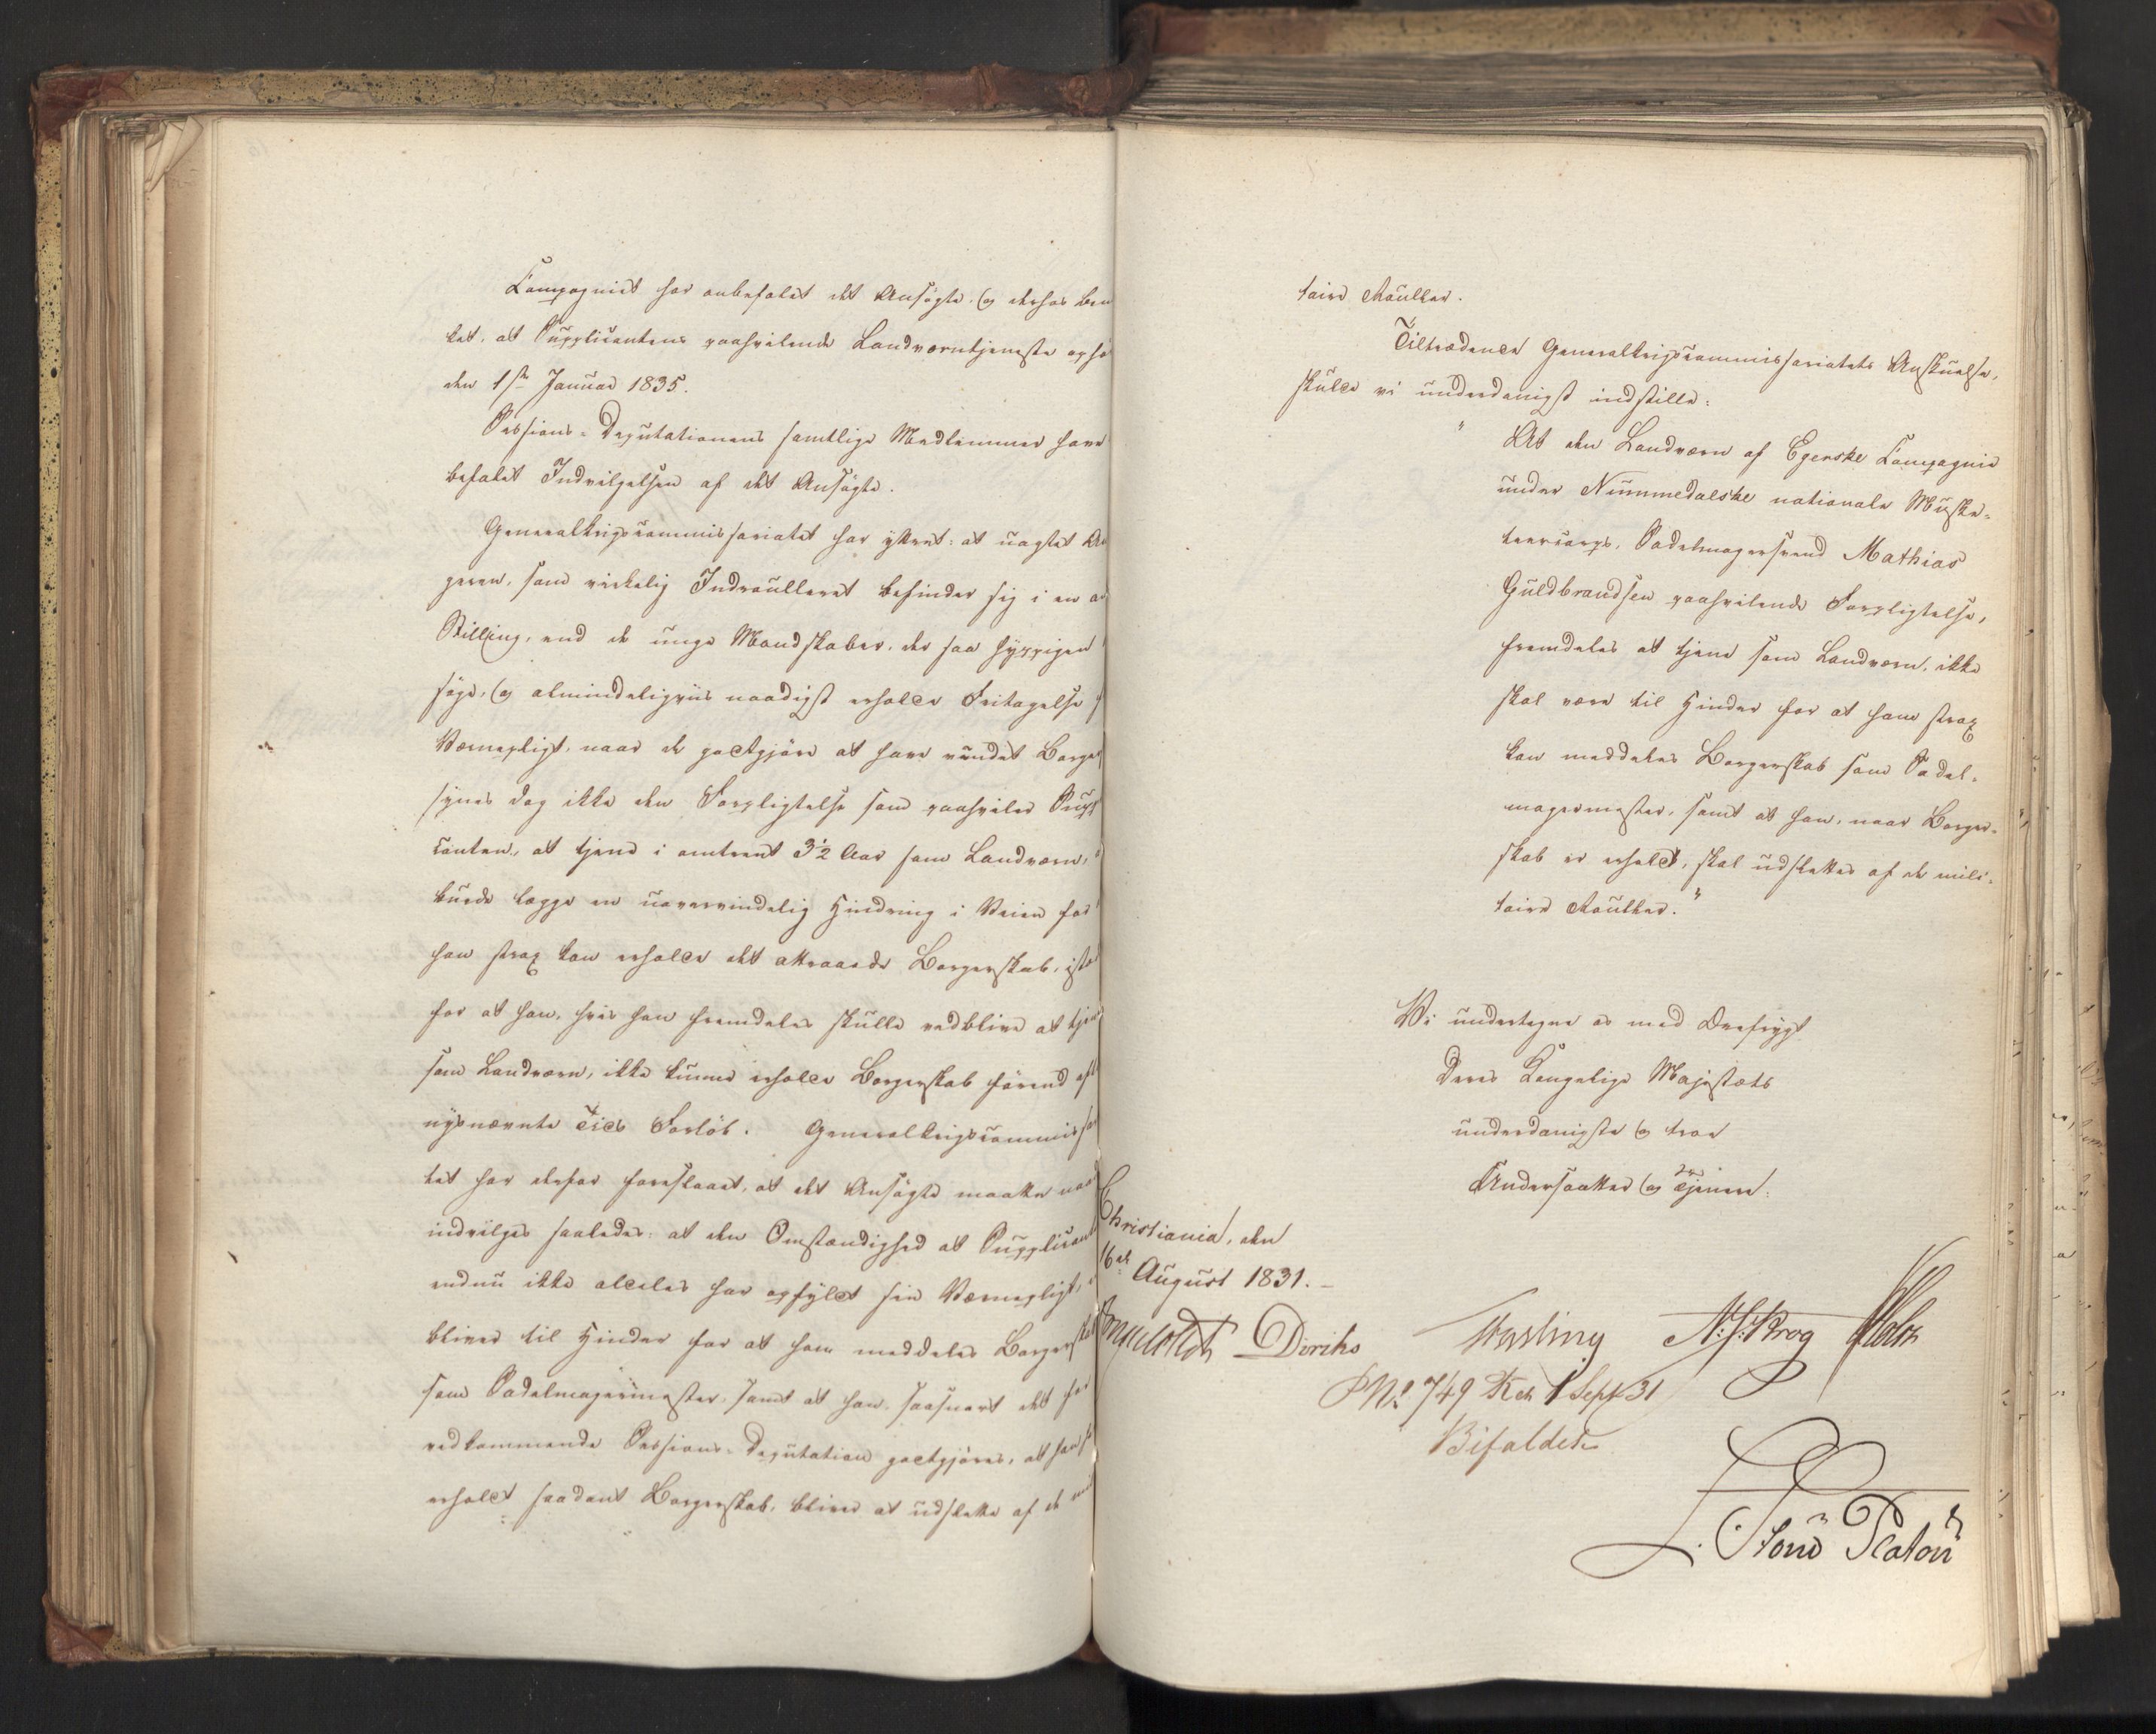 Compagniet har anbefalet det Ansøgte, og derhos bem
ket, at Supplicantens paahvilende Landværntjeneste ophø
den 1ste Januar 1835.
Sessions-Deputationens samtlige Medlemmer have
befalet Indvilgelsen af det Ansøgte.
Generalkrigscommissariatet har yttret: at uagtet An
geren, som virkelig Indroulleret befinder sig i en an
Stilling, end de unge Mandskaber, der saa hyppigen
søge, og almindeligviis naadigst erholde Fritagelse f
Værnepligt, naar de godtgjøre at have vundet Borger
synes dog ikke den Forpligtelse som paahviler Suppl
canten, at tjene i omtrent 3½ Aar som Landværn,
burde lægge en uovervindelig Hindring i Veien for
han strax kan erholde det attraaede Borgerskab, iste
for at han, hvis han fremdeles skulle vedblive at tjene
som Landværn, ikke kunne erholde Borgerskab førend eft
nysnævnte Tids Forløb. Generalkrigscommissa
tet har derfor foreslaaet, at det Ansøgte maatte naa
indvilges saaledes: at den Omstændighed at Supplicant
endnu ikke aldeles har opfyldt sin Værnepligt,
bliver til Hinder for at ham meddeles Borgerskab
som Sadelmagermester, samt at han, saasnart det for
vedkommende Sessions-Deputation godtgjøres, at han
erholdt saadant Borgerskab, bliver at udslette af de mil
taire Rouller.
Tiltrædende Generalkrigscommissariatets Anskuelse,
skulde vi underdanigst indstille:
"At den Landværn af Egerske Compagnie
under Nummedalske nationale Muske-
teercorps, Sadelmagersvend Mathias
Guldbrandsen paahvilende Forpligtelse,
fremdeles at tjene som Landværn, ikke
skal være til Hinder for at ham strax
kan meddeles Borgerskab som Sadel-
magermester, samt at han, naar Borger-
skab er erholdt, skal udslettes af de mili-
taire Rouller."
Vi undertegne os med Ærefrygt
Deres Kongelige Majestæts
underdanigste og troe
Undersaatter og Tjenere:
Christiania, den
16de August 1831.
Diriks N. J. Krog Holst
P No 749 Res 1 Sept 31
Bifaldes
L. Stoud Platou